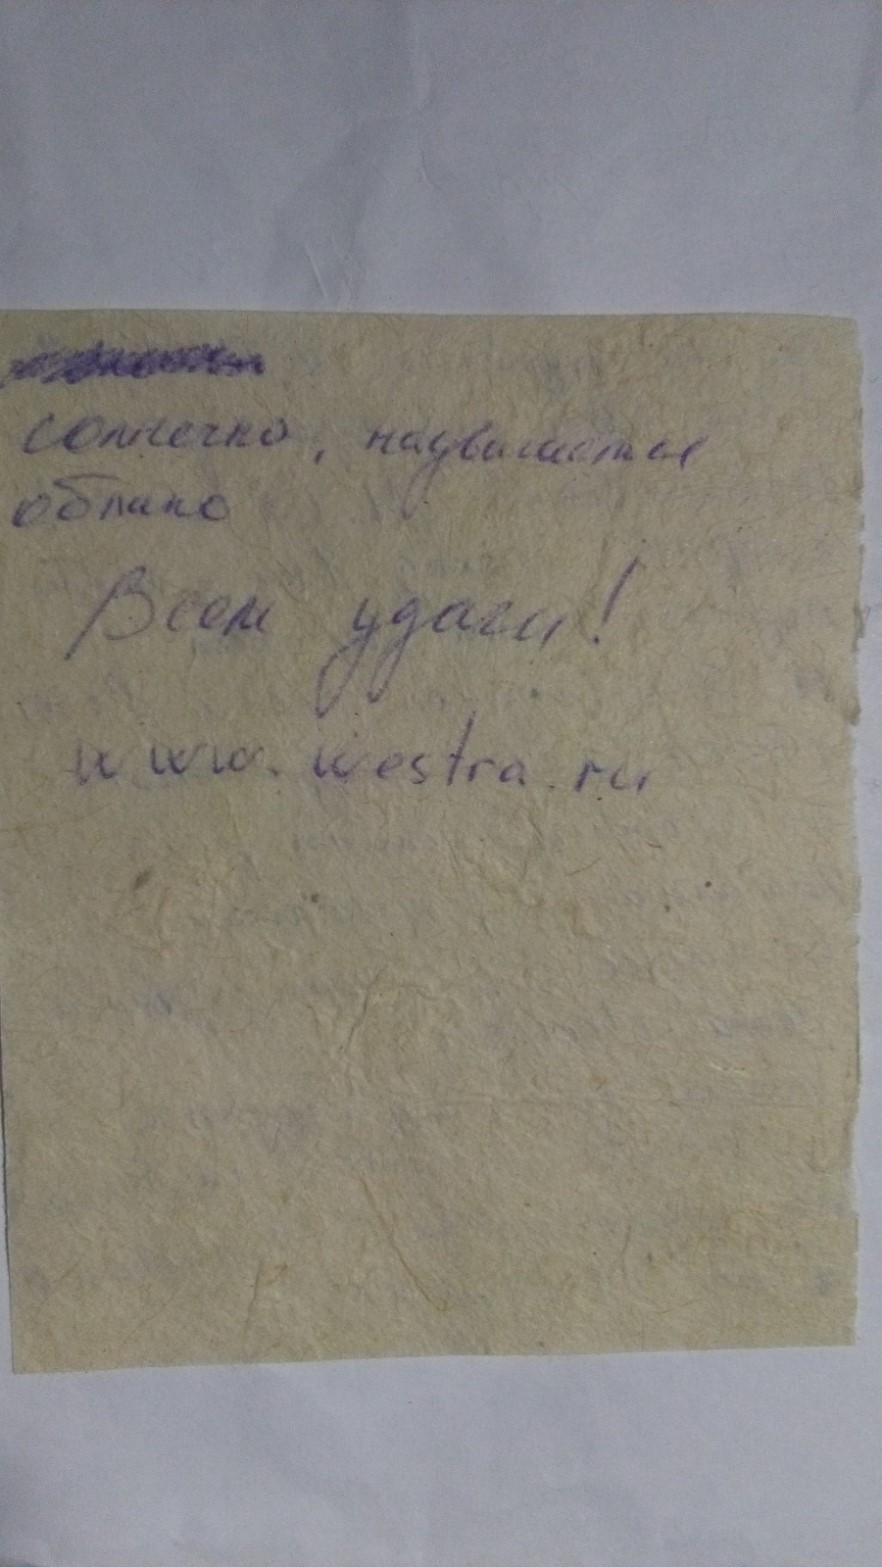 солнечно, надвигается
облако
Всем удачи!
www.westra.ru